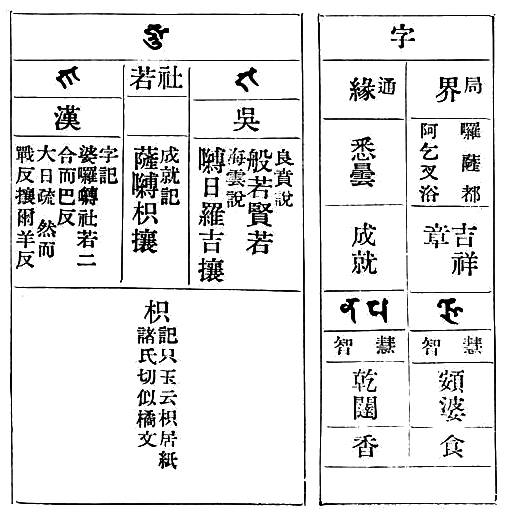 字
局界
囉薩都
阿乞叉浴
吉祥
章
智慧
頞婆
食
通緣
悉曇
成就
智慧
乾闥
香
吳
良賁說
般若賢若
海雲說
囀日羅吉攘
社若
成就記
薩囀枳攘
漢
字記
婆囉囀社若二
合而巴反
大日疏 然而
戰反攘爾羊反
枳
記只玉云枳居紙
諸氏切似橘文